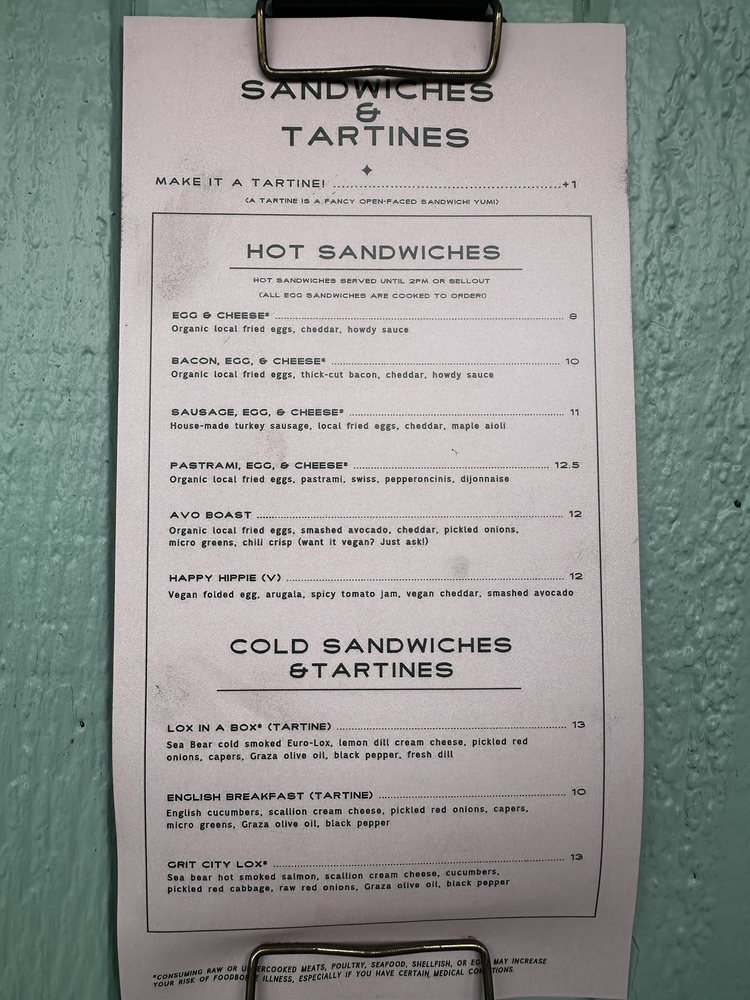 SANDWICHES
&
TARTINES
MAKE IT A TARTINE! +1
(A TARTINE IS A FANCY OPEN-FACED SANDWICH! YUM!)
HOT SANDWICHES
HOT SANDWICHES SERVED UNTIL 2PM OR SELLOUT
(ALL EGG SANDWICHES ARE COOKED TO ORDER!)
EGG & CHEESE* 8
Organic local fried eggs, cheddar, howdy sauce
BACON, EGG, & CHEESE* 10
Organic local fried eggs, thick-cut bacon, cheddar, howdy sauce
SAUSAGE, EGG, & CHEESE* 11
House-made turkey sausage, local fried eggs, cheddar, maple aioli
PASTRAMI, EGG, & CHEESE* 12.5
Organic local fried eggs, pastrami, swiss, pepperoncinis, dijonnaise
AVO BOAST 12
Organic local fried eggs, smashed avocado, cheddar, pickled onions,
micro greens, chili crisp (want it vegan? Just ask!)
HAPPY HIPPIE (V) 12
Vegan folded egg, arugala, spicy tomato jam, vegan cheddar, smashed avocado
COLD SANDWICHES
&TARTINES
LOX IN A BOX* (TARTINE) 13
Sea Bear cold smoked Euro-Lox, lemon dill cream cheese, pickled red
onions, capers, Graza olive oil, black pepper, fresh dill
ENGLISH BREAKFAST (TARTINE) 10
English cucumbers, scallion cream cheese, pickled red onions, capers,
micro greens, Graza olive oil, black pepper
GRIT CITY LOX* 13
Sea bear hot smoked salmon, scallion cream cheese, cucumbers,
pickled red cabbage, raw red onions, Graza olive oil, black pepper
*CONSUMING RAW OR UNDERCOOKED MEATS, POULTRY, SEAFOOD, SHELLFISH, OR EGGS MAY INCREASE
YOUR RISK OF FOODBORNE ILLNESS, ESPECIALLY IF YOU HAVE CERTAIN MEDICAL CONDITIONS.